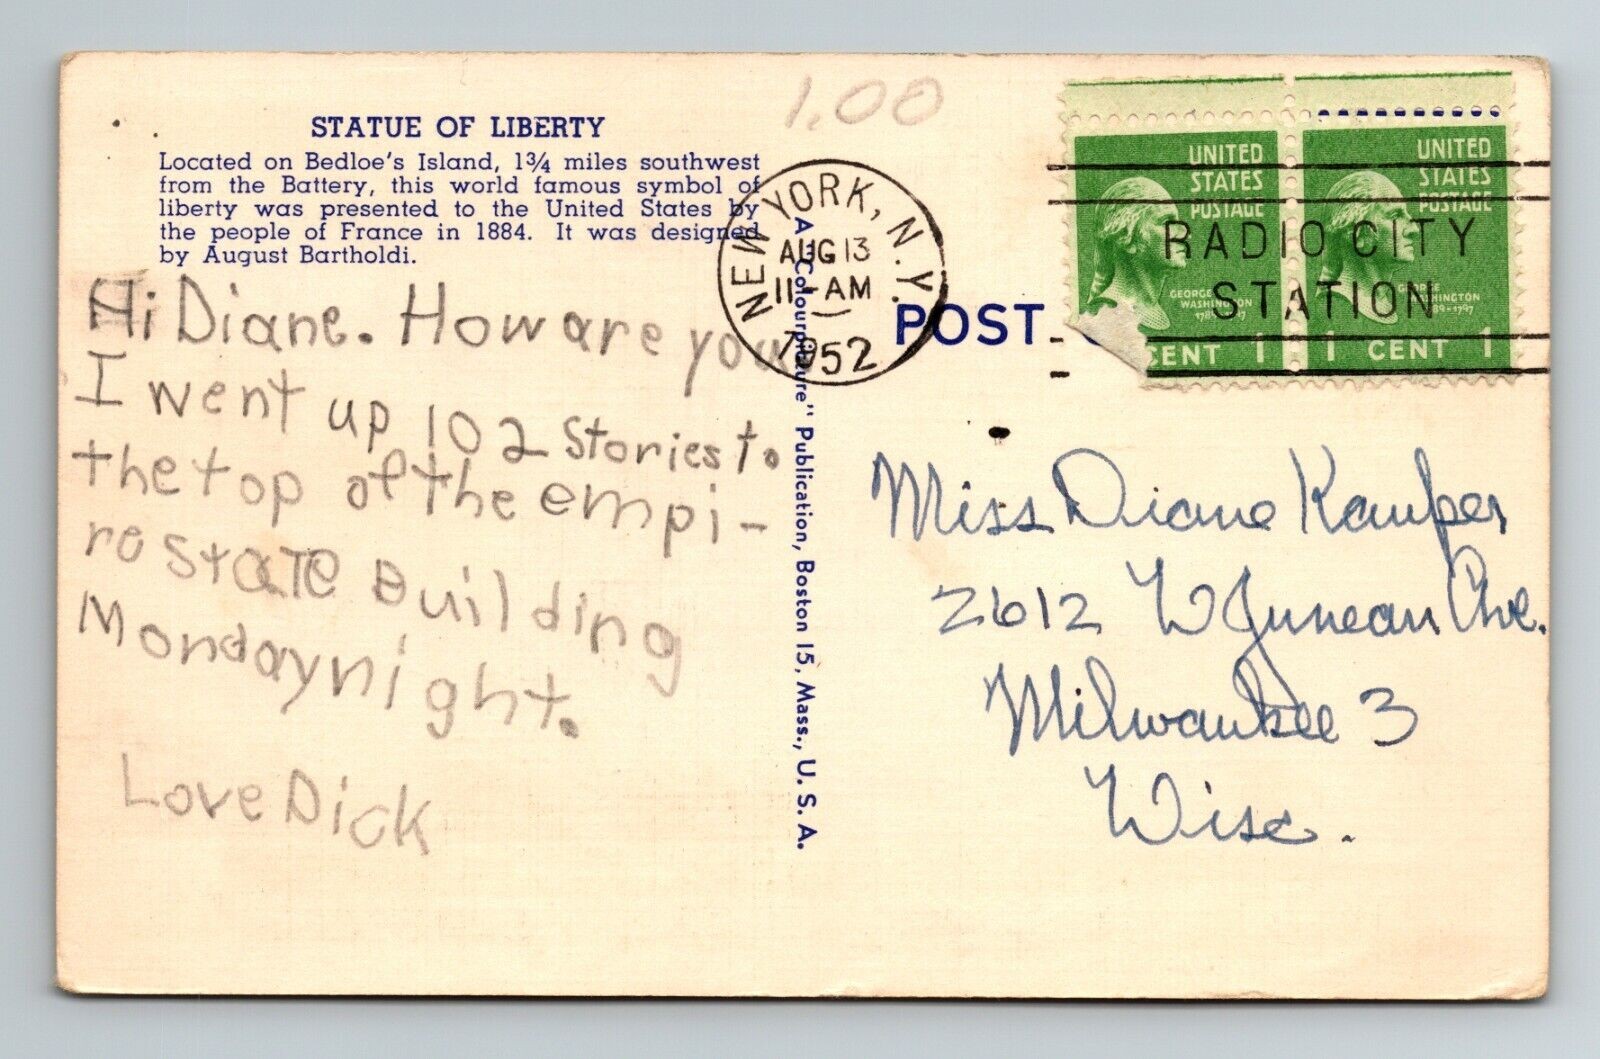 1.00
STATUE OF LIBERTY
Located on Bedloe's Island, 1¾ miles southwest
from the Battery, this world famous symbol of
liberty was presented to the United States by
the people of France in 1884. It was designed
by August Bartholdi.
Hi Diane. How are you
I went up 102 stories to
the top of the empi-
re state Building
Monday night.
Love Dick
NEW YORK, N.Y.
AUG 13
11 - AM
1952
A "Colourpicture" Publication, Boston 15, Mass., U. S. A.
POST
UNITED
STATES
POSTAGE
GEORGE
WASHINGTON
CENT 1
UNITED
STATES
POSTAGE
GEORGE
WASHINGTON
1789-1797
1 CENT 1
RADIO CITY
STATION
Miss Diane Kamper
2612 W Juneau Ave.
Milwaukee 3
Wisc.